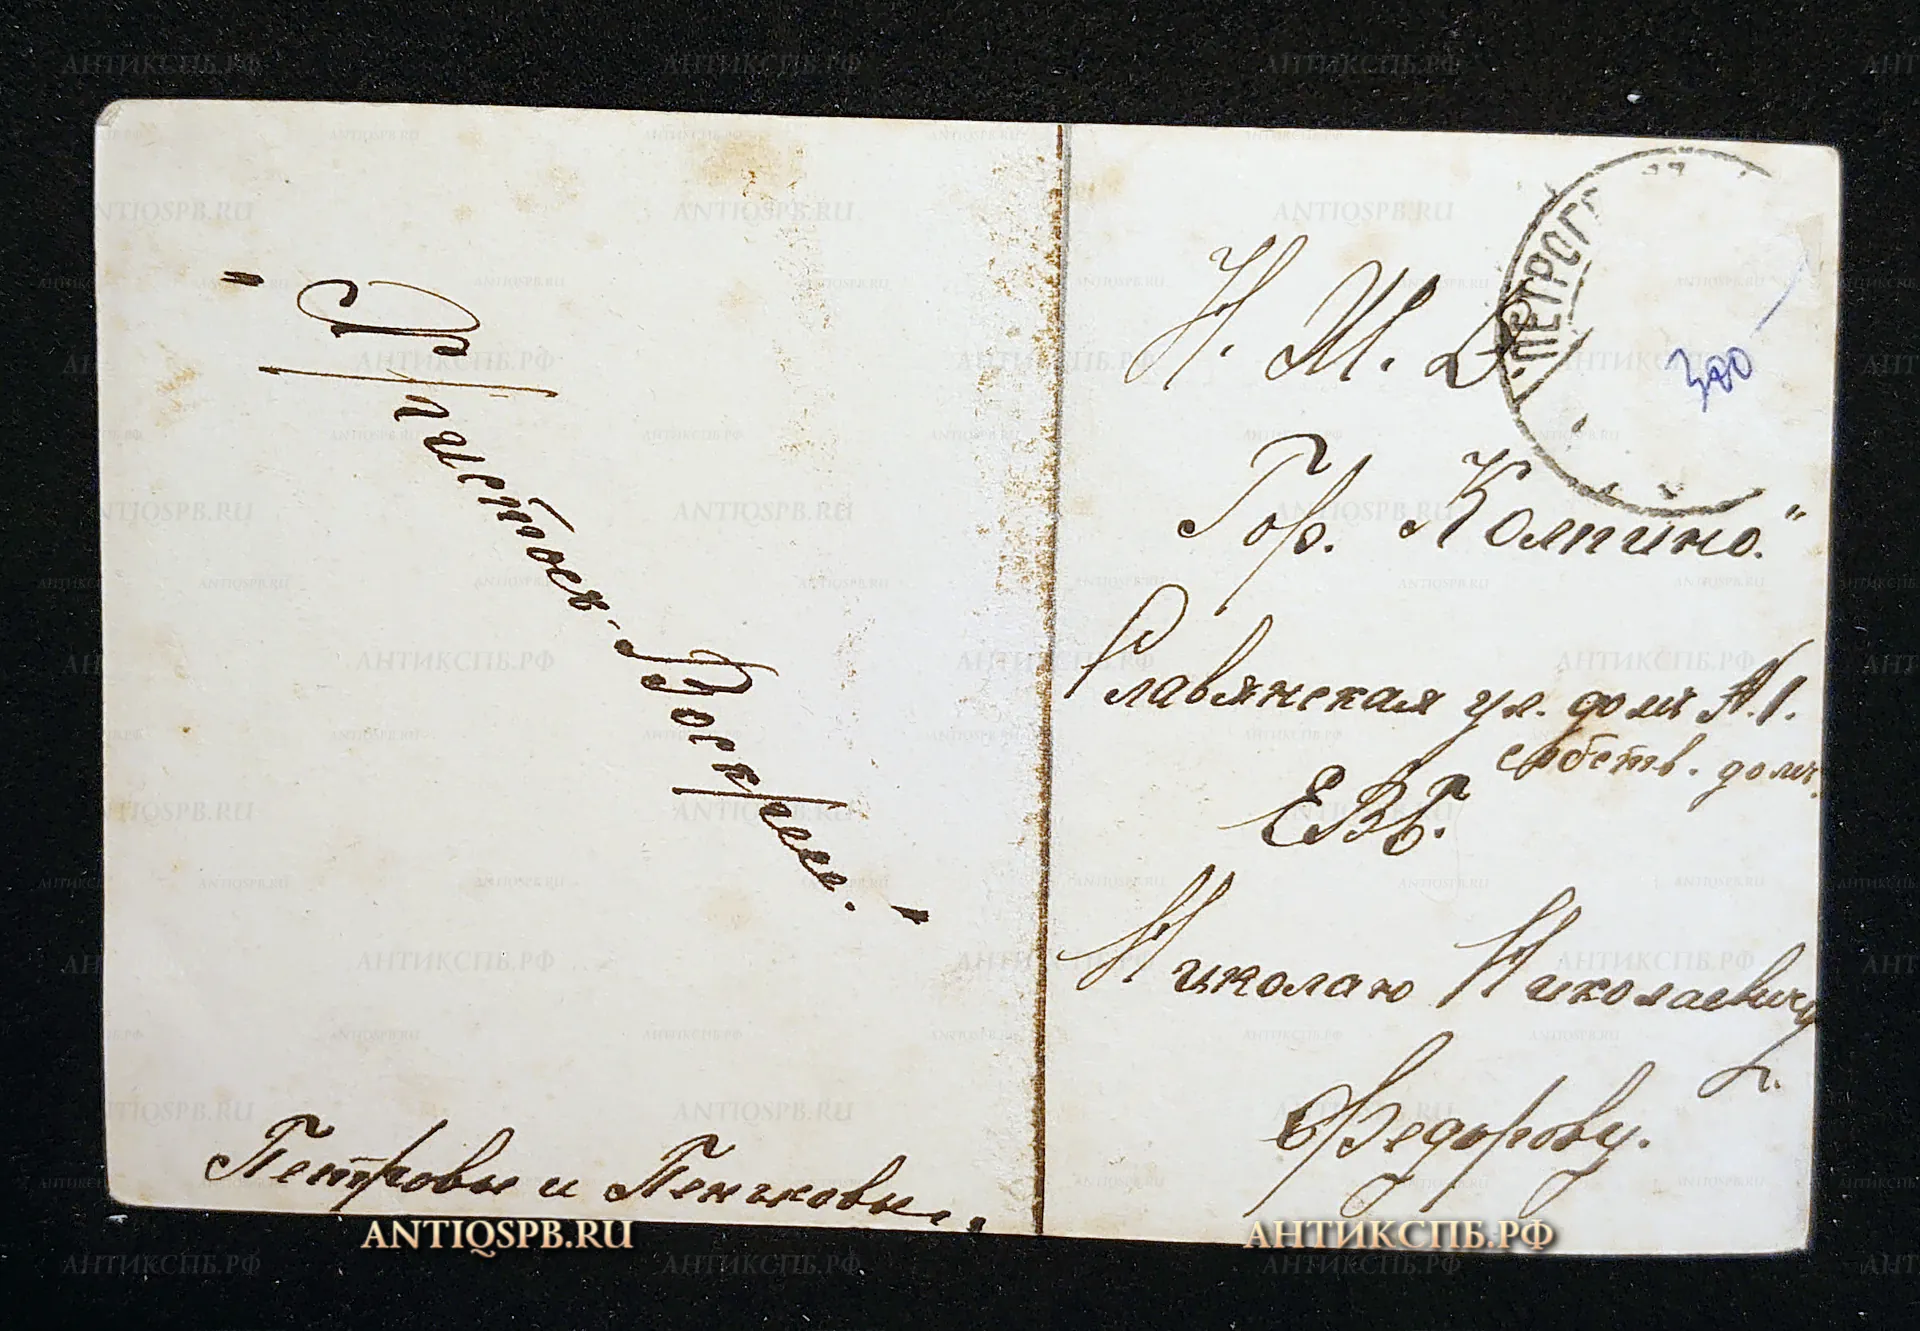 "Христосъ-Воскресе!"
Петровы и Пеньковы.
ПЕТРОГР
Н. Ж. Д.
300
Гор. Колпино."
Славянская ул. домъ №1.
собств. домъ.
ЕВБ.
Николаю Николаевичу
Г.
Федорову.
ANTIQSPB.RU
АНТИКСПБ.РФ